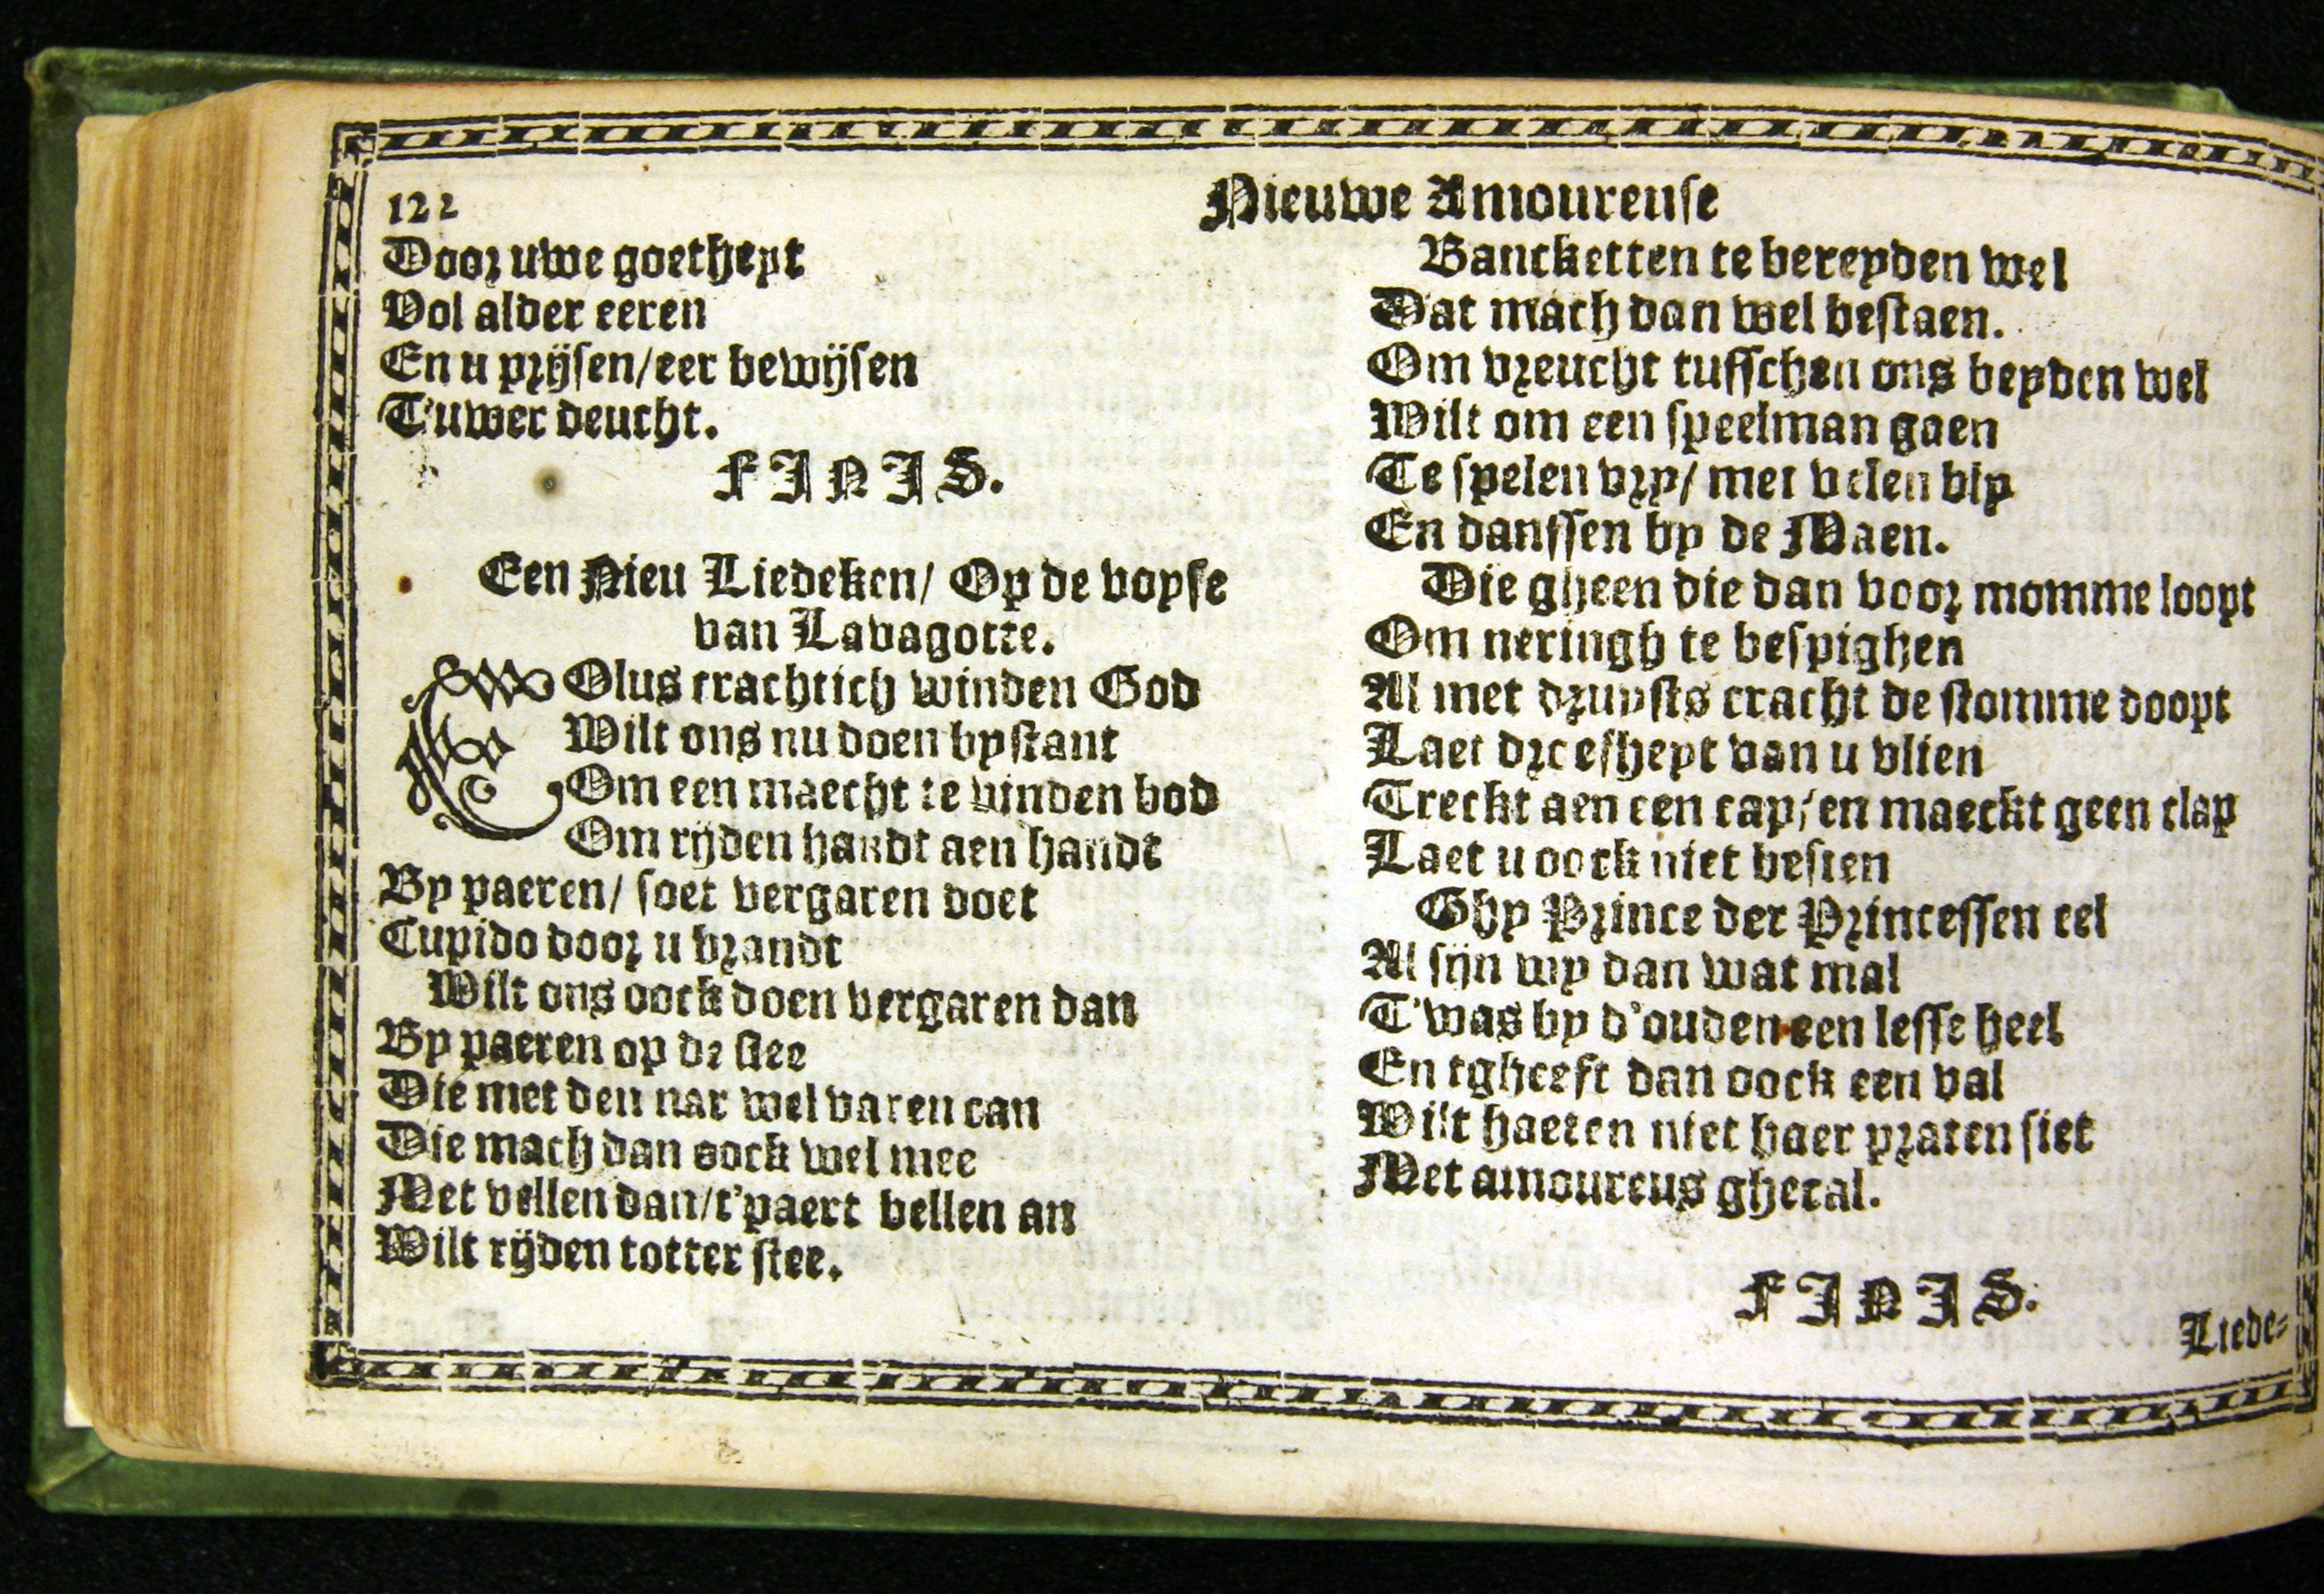 122
Nieuwe Amoureuse
Door uwe goetheyt
Vol alder eeren
En u prijsen/eer bewijsen
T'uwer deucht.
FINIS.
Een Nieu Liedeken/ Op de voyse
van Lavagotte.
EOlus crachtich winden God
Wilt ons nu doen bystant
Om een maecht te vinden bod
Om rijden handt aen handt
By paeren/ soet vergaren doet
Cupido door u brandt
Wilt ons oock doen vergaren dan
By paeren op de slee
Die met den nar wel varen can
Die mach dan oock wel mee
Met vellen dan/t'paert bellen an
Wilt rijden totter stee.
Bancketten te bereyden wel
Dat mach dan wel bestaen.
Om vreucht tusschen ons beyden wel
Wilt om een speelman gaen
Te spelen vry/ met velen bly
En danssen by de Maen.
Die gheen die dan voor momme loopt
Om neringh te bespighen
Al met druysts cracht de stomme doopt
Laet droefheyt van u vlien
Treckt aen een cap/en maeckt geen clap
Laet u oock niet besien
Ghy Prince der Princessen eel
Al sijn wy dan wat mal
T'was by d'ouden een lesse heel
En tgheeft dan oock een val
Wilt haeren niet haer praten siet
Met amoureus ghetal.
FINIS.
Liede=